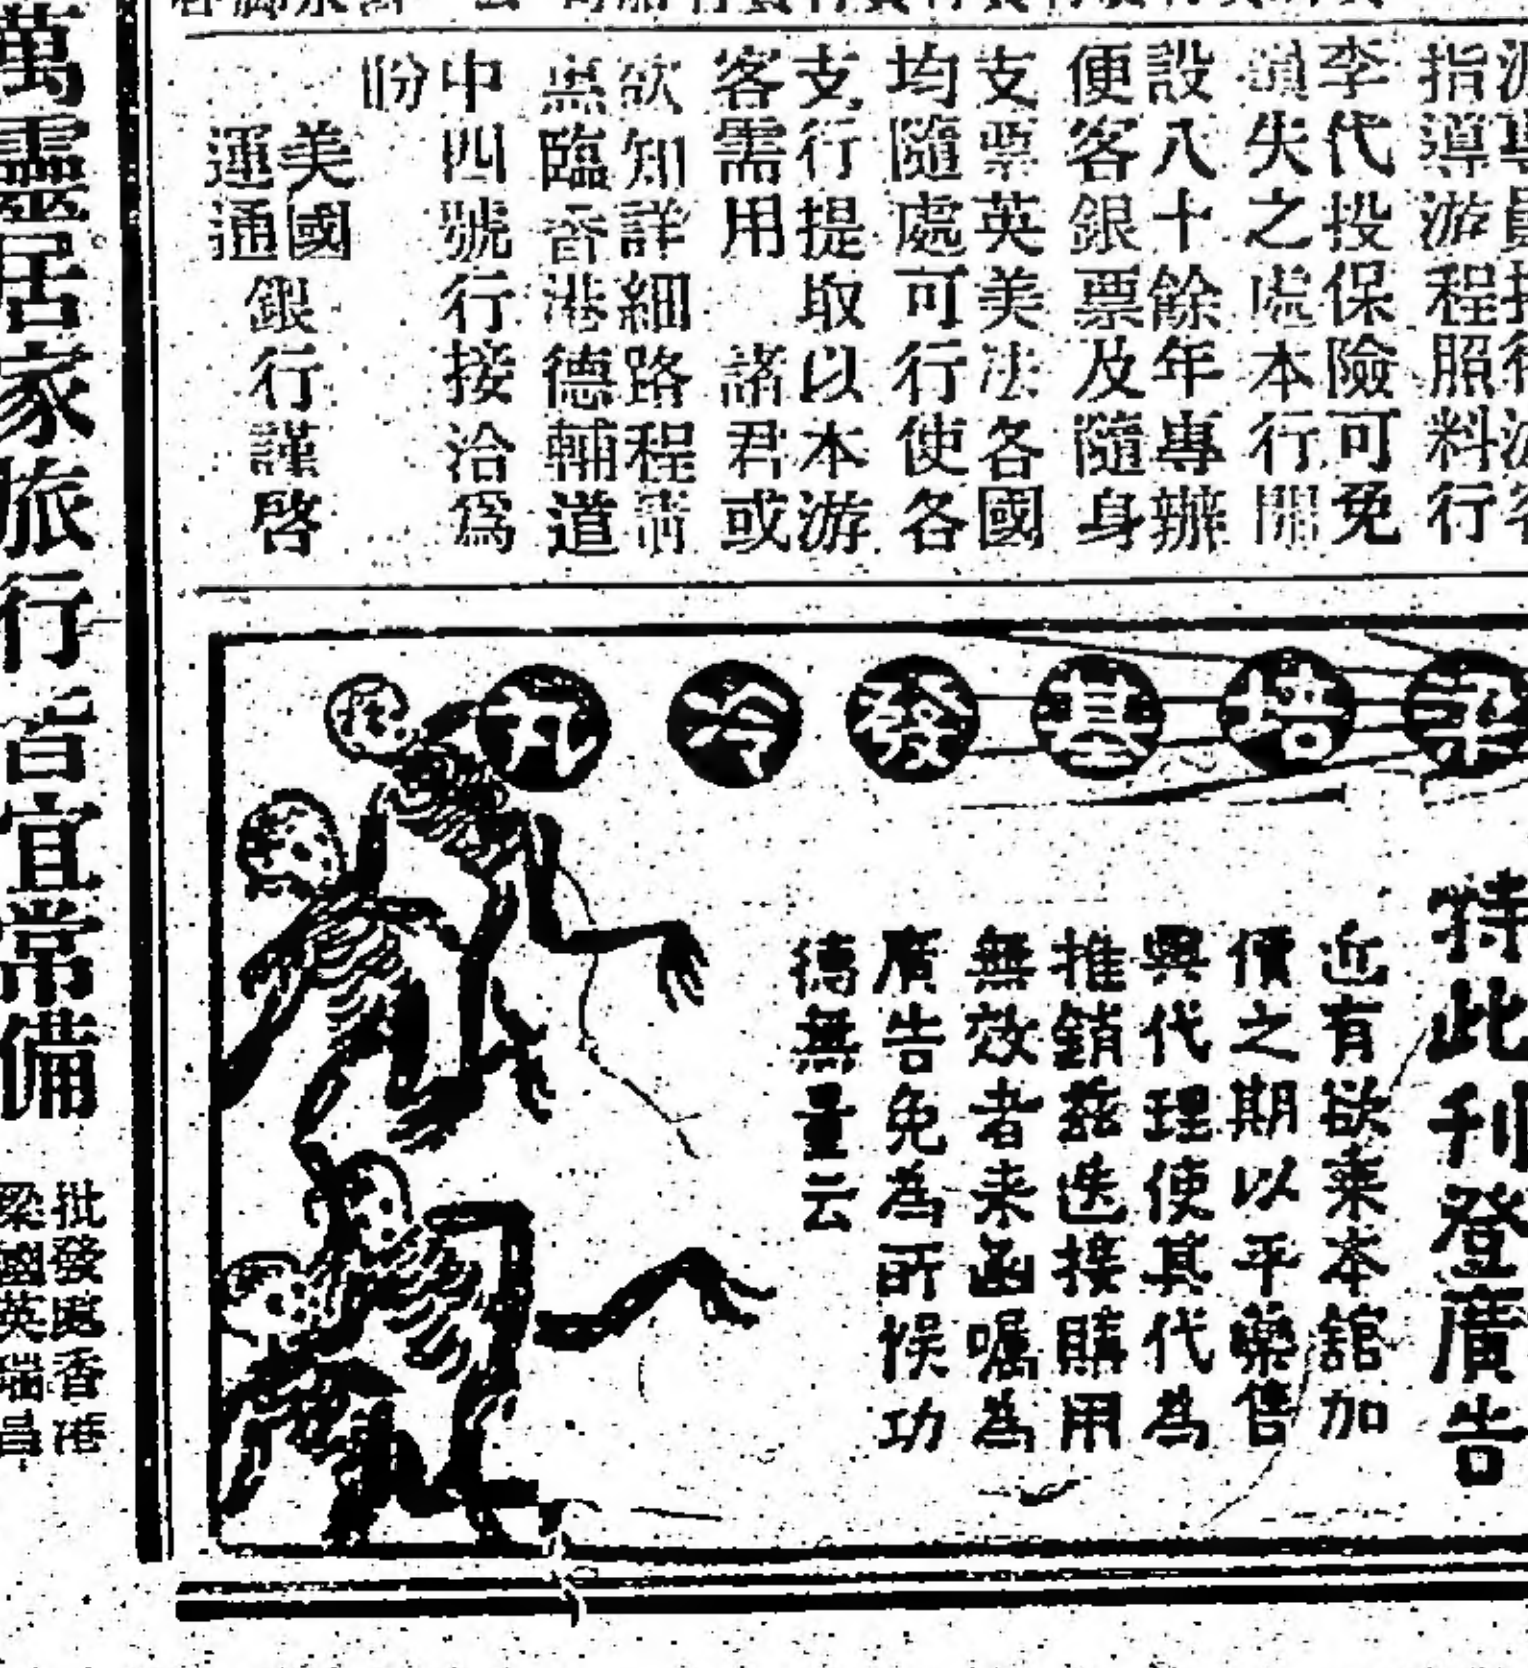 指導游程照料行
李代投保險可免
失之處本行開
設八十餘年專辦
便客銀票及隨身
支票英美法各國
均隨處可行使各
支行提取以本游
客需用 諸君或
欲知詳細路程請
臨香港德輔道
中四號行接洽爲
盼
美國
運通
銀行謹啓
梁培基發冷丸
特此刊登廣告
近有欲乘本舘加
價之期以平藥售
與代理使其代為
推銷茲迭接購用
無效者来函嘱為
廣告免為所悮功
德無量云
萬靈居家旅行皆宜常備
批發處香港
梁國英瑞昌